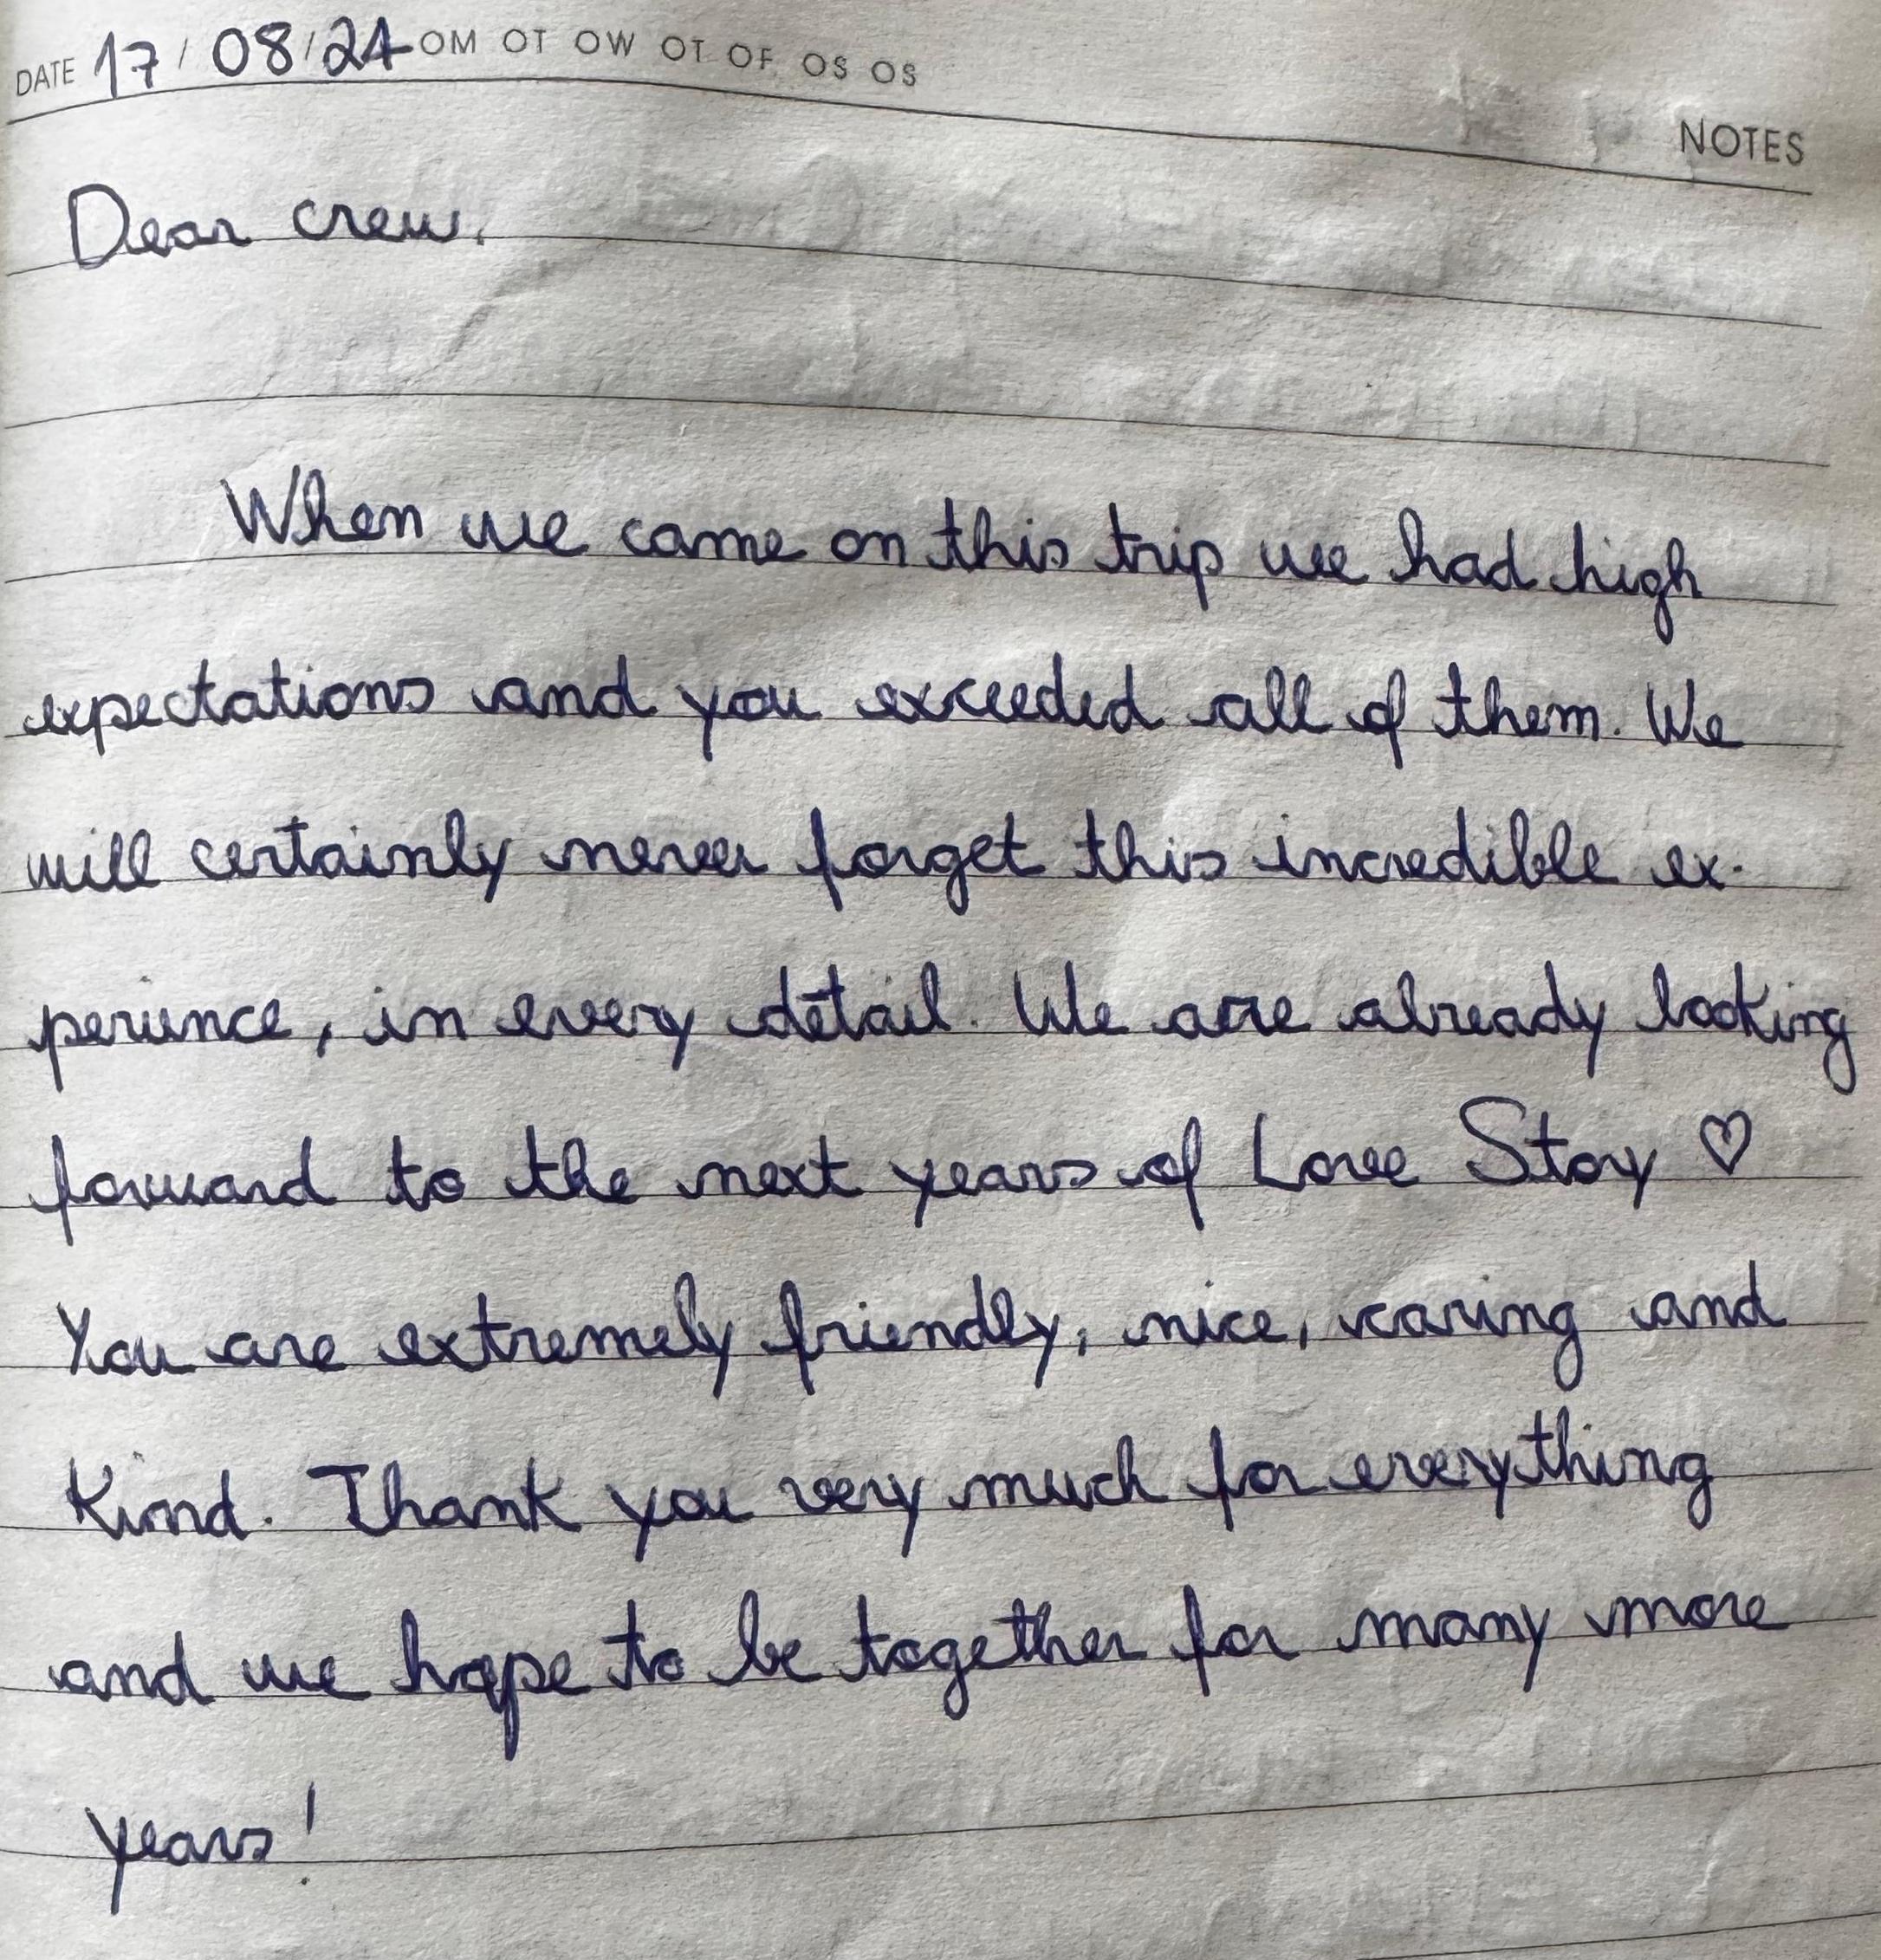 DATE 17 / 08 / 24 OM OT OW OT OF OS OS
NOTES
Dear crew,
When we came on this trip we had high
expectations and you exceeded all of them. We
will certainly never forget this incredible ex-
perience, in every detail. We are already looking
forward to the next years of Love Story ♡
You are extremely friendly, nice, caring and
Kind. Thank you very much for everything
and we hope to be together for many more
years!